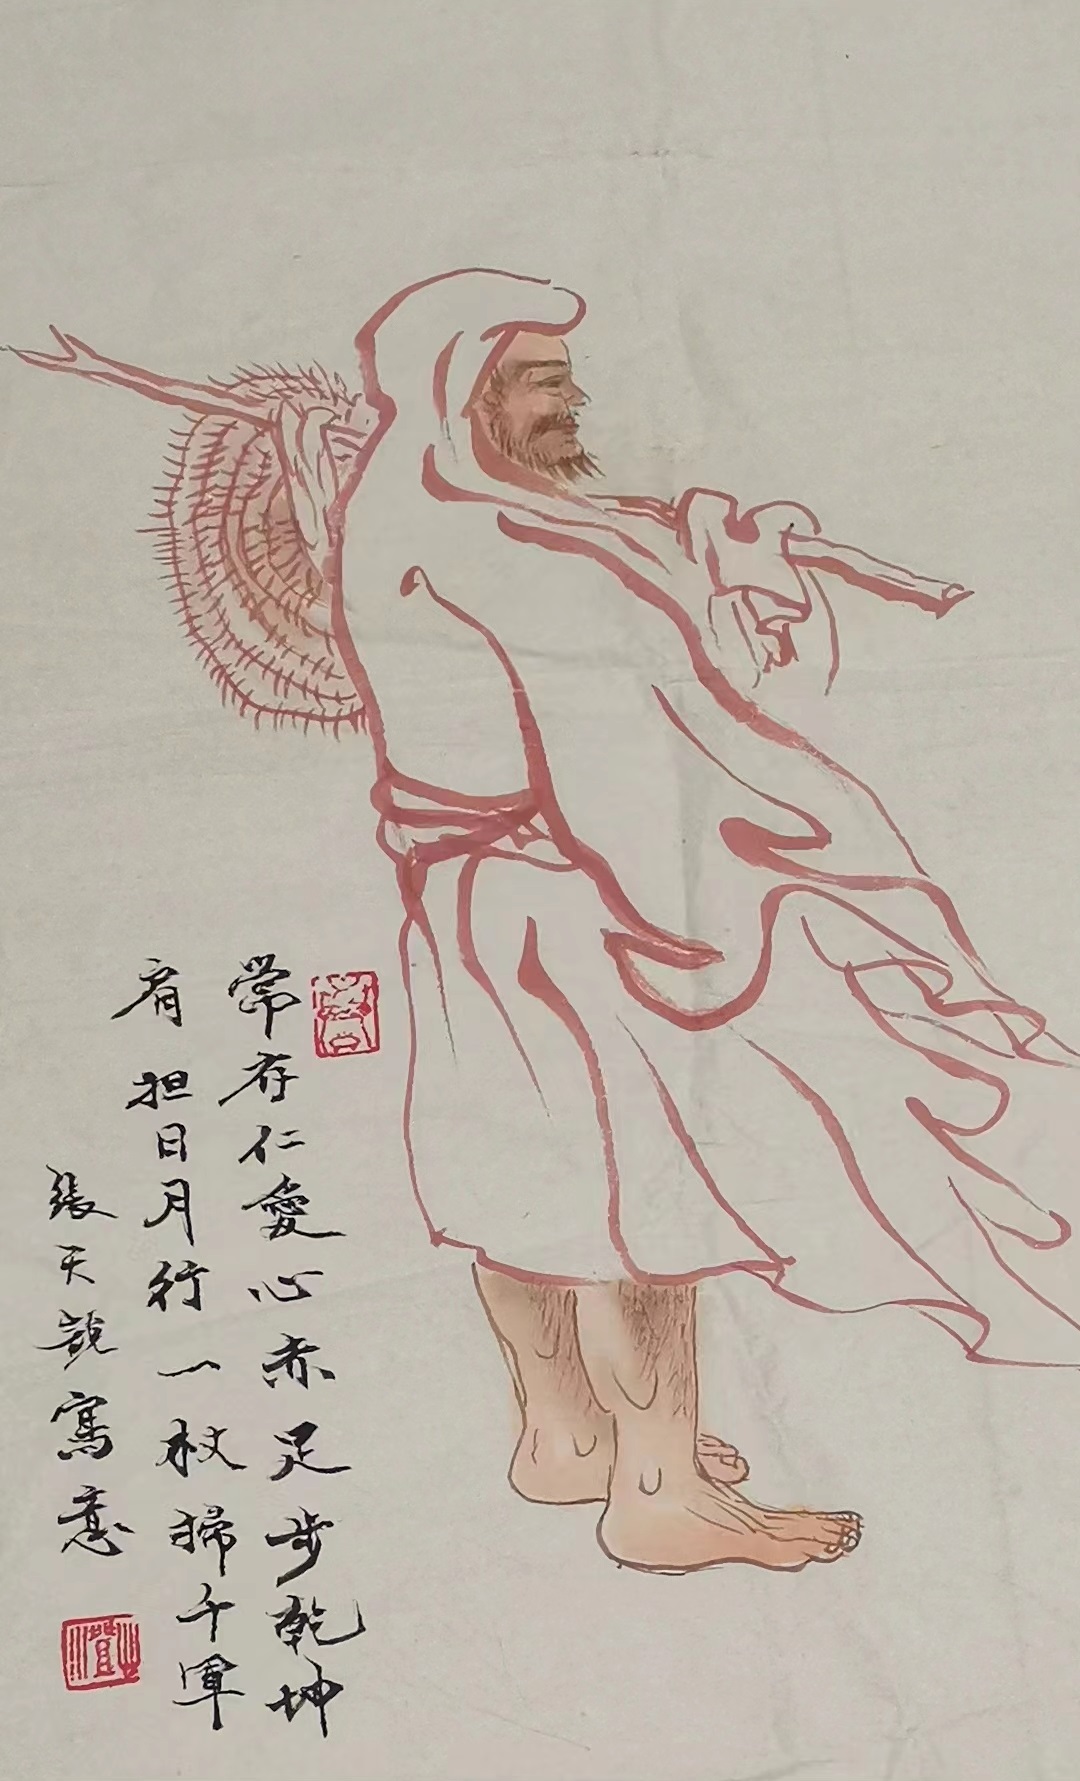 常存仁愛心赤足步乾坤
肩担日月行一杖掃千軍
張天說寫意